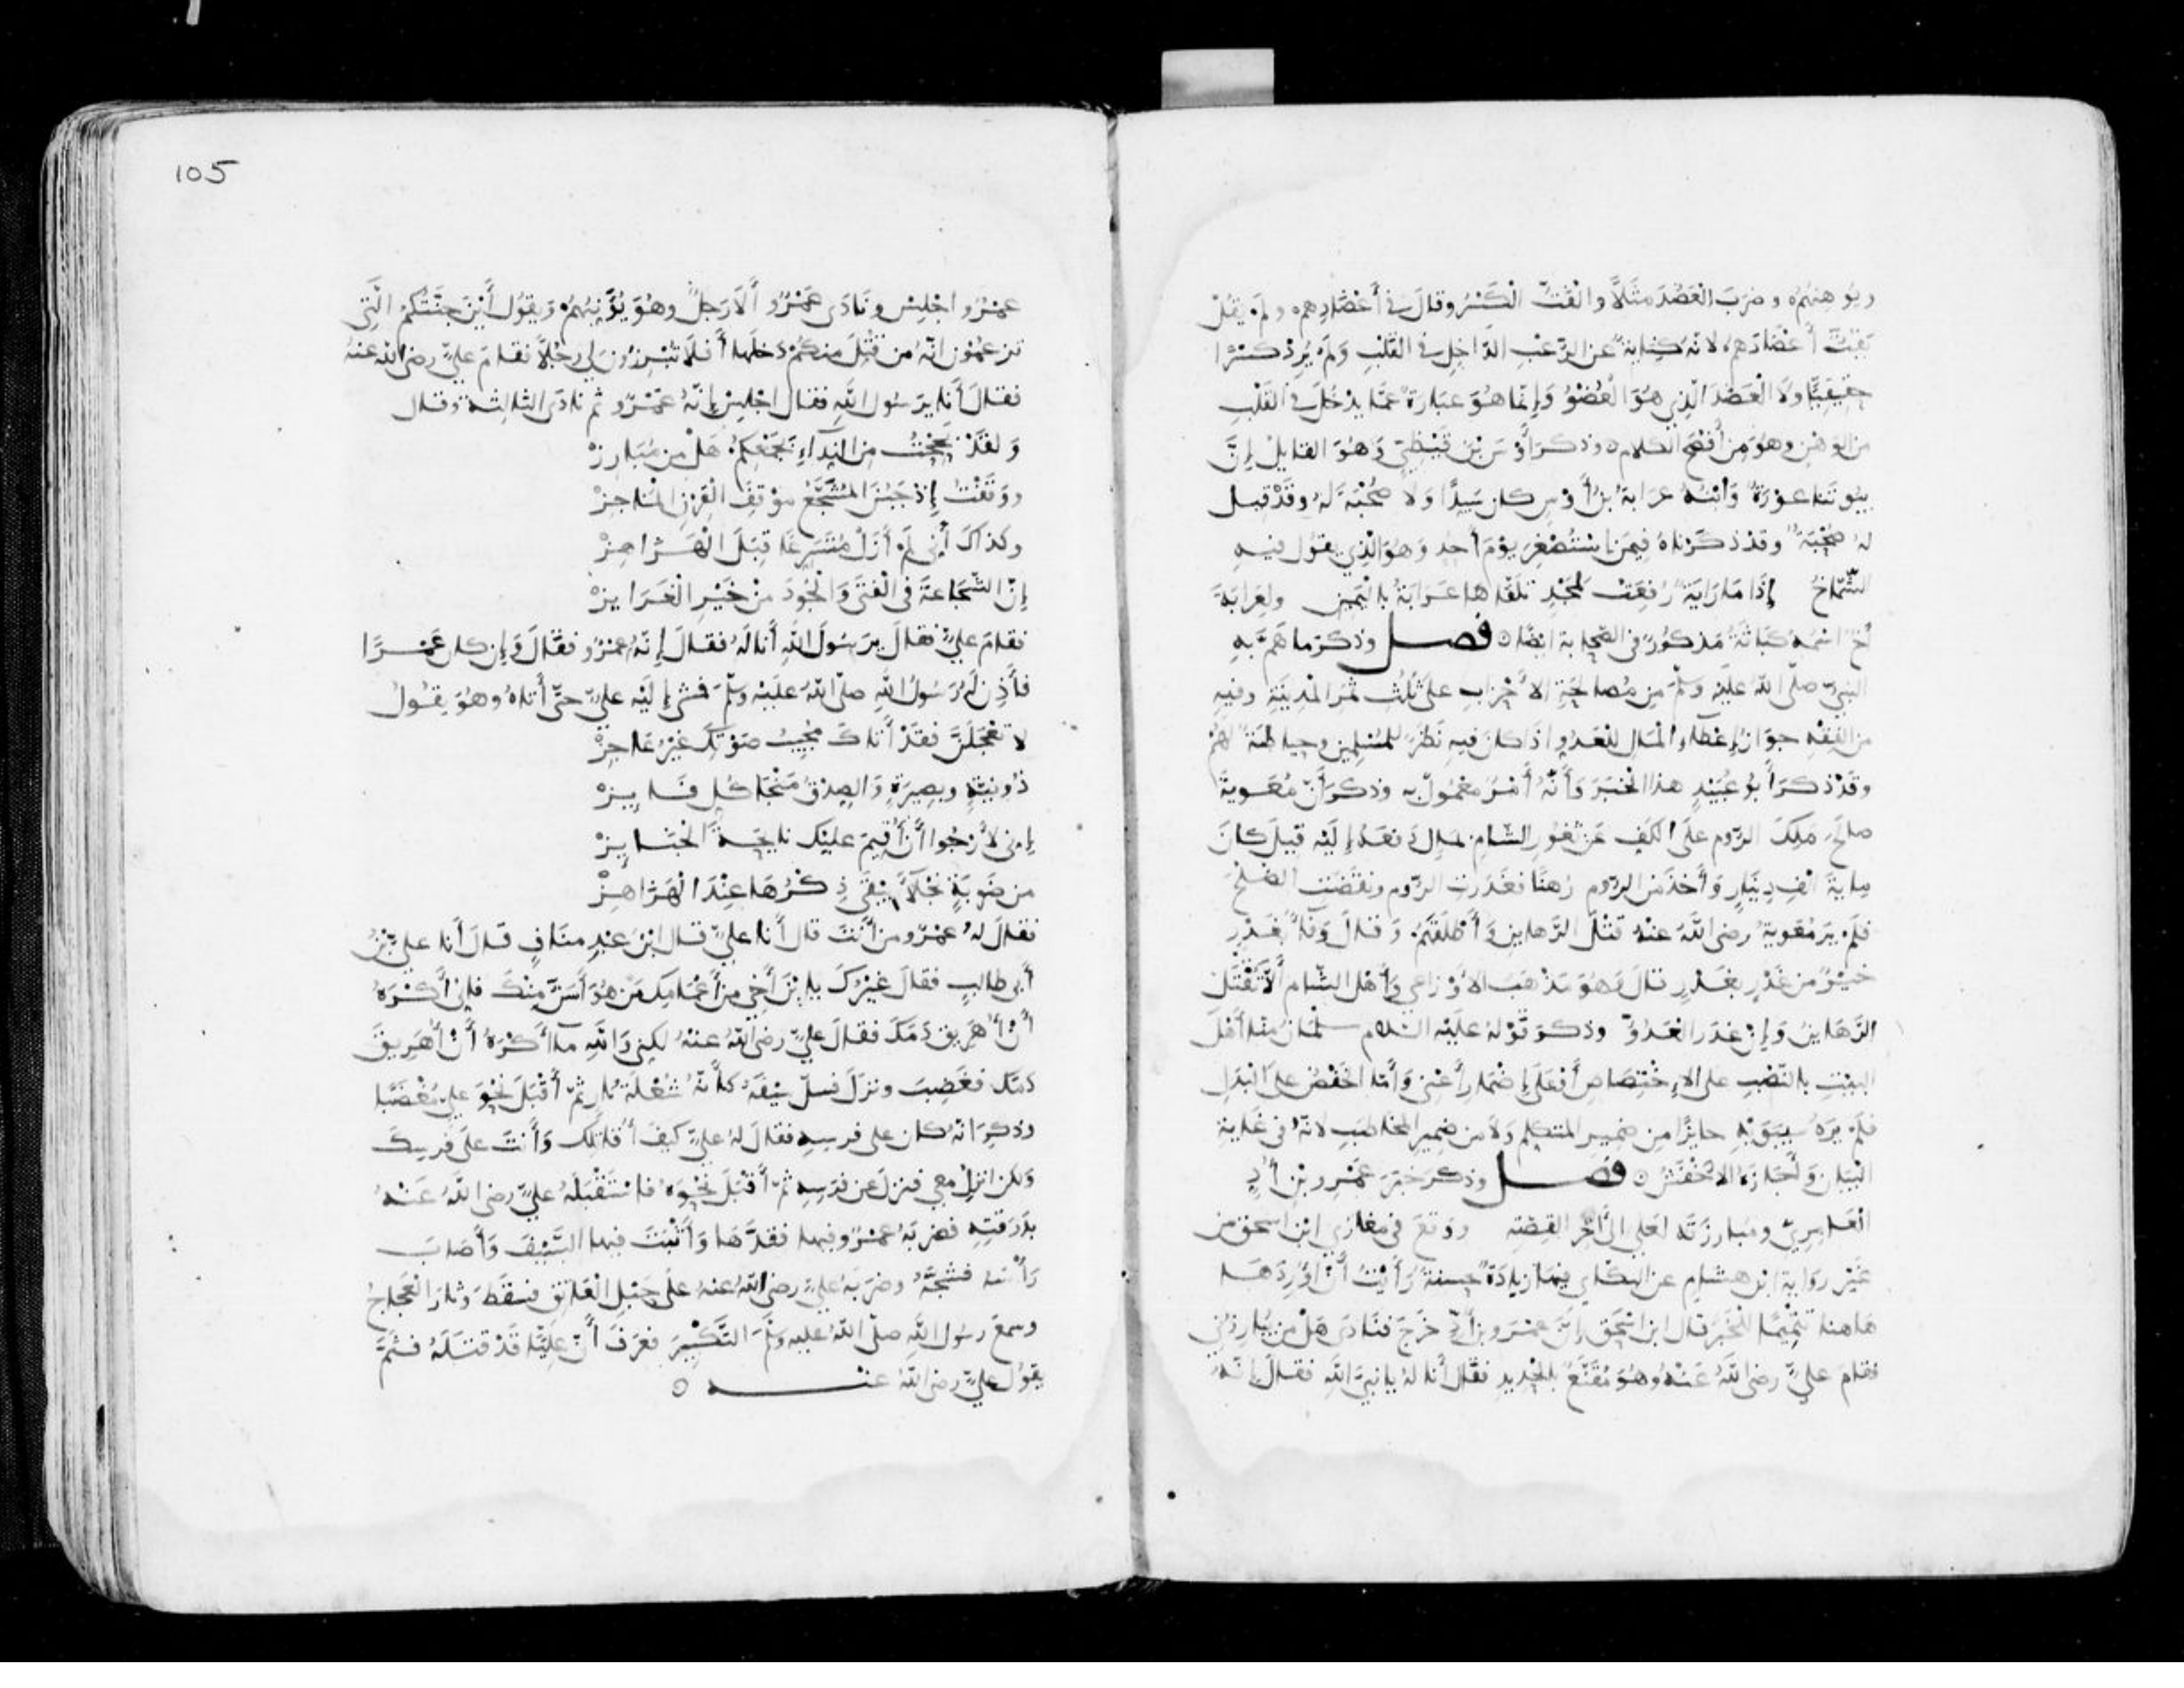 ويوهنهم وضرب العضد مثلا والفت الكسر وقال في أعضادهم ولم يقل
يفت أعضادهم لانه كناية عن الرعب الداخل في القلب ولم يرد كسرا
حقيقيا ولا العضد الذي هو العضو وإنما هو عبارة عما يدخل في القلب
من الوهن وهو من أفصح الكلام ه وذكر أوس بن قيظي وهو القايل إن
بيوتنا عورة وابنه عرابة بن أوس كان سيدا ولا صحبة له وقد قيل
له صحبة وقد ذكرناه فيمن استصغر يوم أحد وهو الذي يقول فيه
الشماخ إذا ما راية رفعت لمجد تلقاها عرابة باليمين ولعرابة
أخ اسمه كباثة مذكور في الصحابة ايضا ه فصل وذكر ما هم به
النبي صلى الله عليه وسلم من مصالحة الأحزاب على ثلث ثمر المدينة وفيه
من الفقه جواز إعطاء المال للعدو اذا كان فيه نظر للمسلمين وحياطة لهم
وقد ذكر أبو عبيد هذا الخبر وأنه أمر معمول به وذكر أن معوية
صالح ملك الروم على الكف عن ثغور الشام بمال دفعه إليه قيل كان
ماية الف دينار وأخذ من الروم رهنا فغدرت الروم ونقضت الصلح
فلم ير معوية رضي الله عنه قتل الرهاين وأطلقهم وقال وفاء بغدر
خير من غدر بغدر قال وهو مذهب الأوزاعي وأهل الشام ألا تقتل
الرهاين وإن غدر العدو وذكر قوله عليه السلام سلمان منا أهل
البيت بالنصب على الإختصاص أو على إضمار أعني وأما الخفض على البدل
فلم يره سيبويه جايزا من ضمير المتكلم ولا من ضمير المخاطب لانه في غاية
البيان وأجازه الاخفش ه فصل وذكر خبر عمرو بن أد
العامري ومبارزته لعلي الى اخر القصة ووقع في مغازي ابن اسحق من
غير رواية ابن هشام عن البكاي فيها زيادة حسنة رأيت أن أوردها
هاهنا تتميما للخبر قال ابن اسحق إن عمرو بن أد خرج فنادى هل من يبارزني
فقام علي رضي الله عنه وهو مقنع بالحديد فقال أنا له يا نبي الله فقال إنه
105
عمرو اجلس ونادى عمرو ألا رجل وهو يؤنبهم ويقول أين جنتكم التي
تزعمون انه من قتل منكم دخلها أفلا تبرزون لي رجلا فقام علي رضي الله عنه
فقال أنا يرسول الله فقال اجلس إنه عمرو ثم نادى الثالثة وقال
ولقد بححت من النداء بجمعكم هل من مبارز
ووقفت إذ جبن المشجع موقف القرن المناجز
وكذاك أني لم أزل متسرعا قبل الهزاهز
إن الشجاعة في الفتى والجود من خير الغرايز
فقام علي فقال يرسول الله أنا له فقال إنه عمرو فقال وإن كان عمرا
فأذن له رسول الله صلى الله عليه وسلم فمشى إليه علي حتى أتاه وهو يقول
لا تعجلن فقد أتاك مجيب صوتك غير عاجز
ذو نية وبصيرة والصدق منجا كل فايز
إني لأرجوا أن أقيم عليك نايحة الجنايز
من ضربة نجلاء يبقى ذكرها عند الهزاهز
فقال له عمرو من أنت قال أنا علي قال ابن عبد مناف قال أنا علي بن
أبي طالب فقال غيرك يا بن أخي من أعمامك من هو أسن منك فإني أكره
أن أهريق دمك فقال علي رضي الله عنه لكني والله ما أكره أن أهريق
دمك فغضب ونزل فسل سيفه كأنه شعلة نار ثم أقبل نحو علي مغضبا
وذكر انه كان على فرسه فقال له علي كيف أقاتلك وأنت على فرسك
ولكن انزل معي فنزل عن فرسه ثم أقبل نحوه فاستقبله علي رضي الله عنه
بدرقته فضربه عمرو فيها فقدها وأثبت فيها السيف وأصاب
رأسه فشجه وضربه علي رضي الله عنه على حبل العاتق فسقط وثار العجاج
وسمع رسول الله صلى الله عليه وسلم التكبير فعرف أن عليا قد قتله فثم
يقول علي رضي الله عنه ه